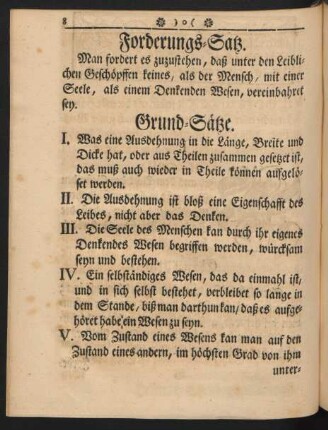 8 ❁ )o( ❁
Forderungs-Satz.
Man fordert es zuzustehen, daß unter den Leibli-
chen Geschöpffen keines, als der Mensch/ mit einer
Seele, als einem Denckenden Wesen, vereinbahret
sey.
Grund-Sätze.
I. Was eine Ausdehnung in die Länge, Breite und
Dicke hat, oder aus Theilen zusammen gesetzet ist,
das muß auch wieder in Theile können aufgelö-
set werden.
II. Die Ausdehnung ist bloß eine Eigenschafft des
Leibes, nicht aber das Denken.
III. Die Seele des Menschen kan durch ihr eigenes
Denckendes Wesen begriffen werden, würcksam
seyn und bestehen.
IV. Ein selbständiges Wesen, das da einmahl ist,
und in sich selbst bestehet, verbleibet so lange in
dem Stande, biß man darthun kan/ daß es aufge-
höret habe/ ein Wesen zu seyn.
V. Vom Zustand eines Wesens kan man auf den
Zustand eines andern, im höchsten Grad von ihm
unter-